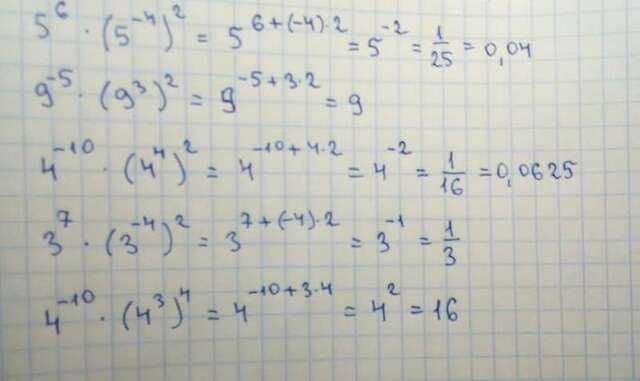 5⁶ · (5⁻⁴)² = 5⁶⁺⁽⁻⁴⁾·² = 5⁻² = 1/25 = 0,04
9⁻⁵ · (9³)² = 9⁻⁵⁺³·² = 9
4⁻¹⁰ · (4⁴)² = 4⁻¹⁰⁺⁴·² = 4⁻² = 1/16 = 0,0625
3⁷ · (3⁻⁴)² = 3⁷⁺⁽⁻⁴⁾·² = 3⁻¹ = 1/3
4⁻¹⁰ · (4³)⁴ = 4⁻¹⁰⁺³·⁴ = 4² = 16